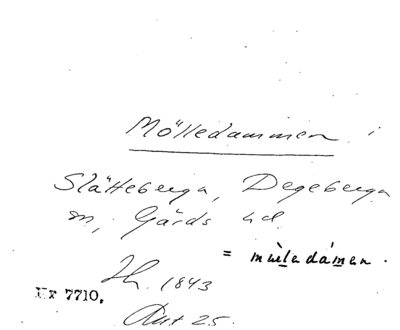 Mölledammen i
Slätteberga, Degeberga
sn, Gärds hd.
= mɯ̀ledámen.
1843
Ur 7710.
Ant 25.